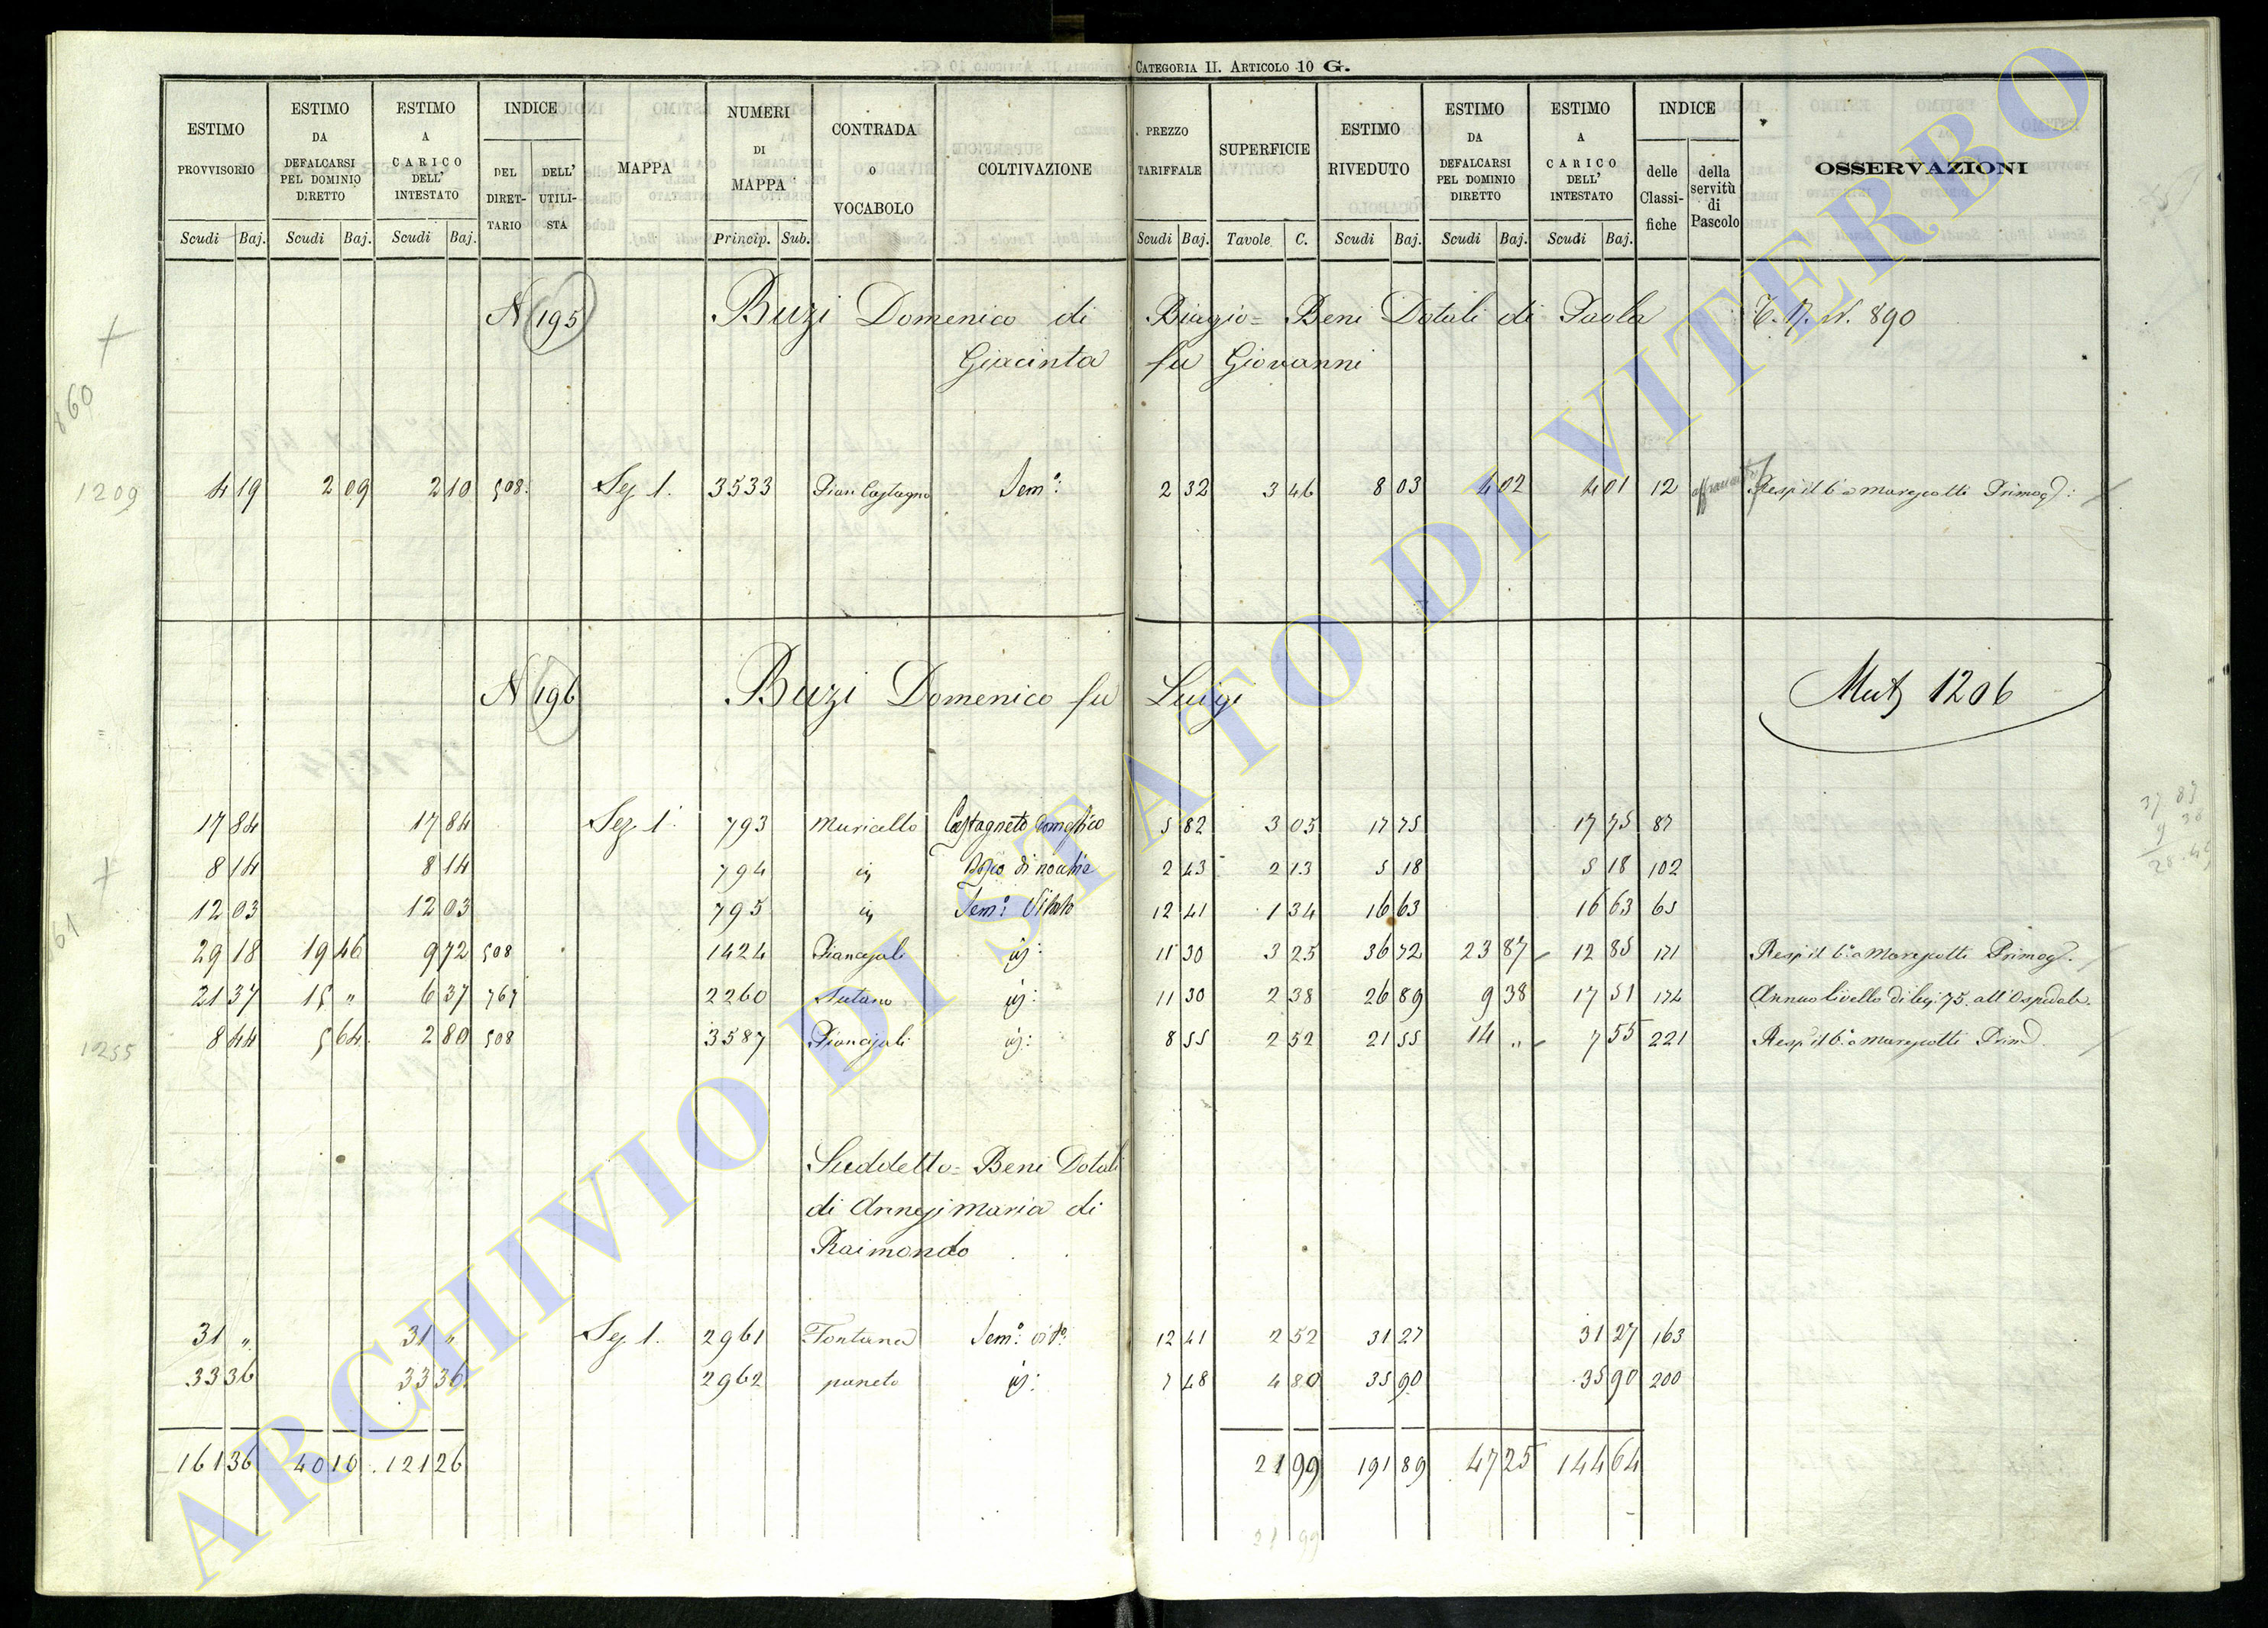 CATEGORIA II. ARTICOLO 10 G.
ESTIMO PROVVISORIO Scudi Baj. ESTIMO DA DEFALCARSI PEL DOMINIO DIRETTO Scudi Baj. ESTIMO A CARICO DELL' INTESTATO Scudi Baj. INDICE DEL DIRETTARIO DELL' UTILISTA MAPPA NUMERI DI MAPPA Princip. Sub. CONTRADA O VOCABOLO COLTIVAZIONE PREZZO TARIFFALE Scudi Baj. SUPERFICIE Tavole C. ESTIMO RIVEDUTO Scudi Baj. ESTIMO DA DEFALCARSI PEL DOMINIO DIRETTO Scudi Baj. ESTIMO A CARICO DELL' INTESTATO Scudi Baj. INDICE delle Classifiche della servitù di Pascolo OSSERVAZIONI
N 195 Buzi Domenico di Biagio = Beni Dotali di Paola N. 890
Giacinta fu Giovanni
860
1209 4 19 2 09 2 10 508. Sez 1. 3533 Pian Castagno Sem.o: 2 32 3 46 8 03 4 02 4 01 12 Resp il 6.o a Marescotti Primog:
N 196 Buzi Domenico fu Luigi Mut 1206
17 84 17 84 Sez 1. 793 Muricello Castagneto Domestico 5 82 3 05 17 75 17 75 87
8 14 8 14 794 Bosco di nocchie 2 43 2 13 5 18 5 18 102
12 03 12 03 795 Sem.o: Vitato 12 41 1 34 16 63 16 63 65
29 18 19 46 9 72 508 1424 11 30 3 25 36 72 23 87 12 85 171 Resp il 6.o a Marescotti Primog.
21 37 15 " 6 37 767 2260 11 30 2 38 26 89 9 38 17 51 174 Annuo livello di baj. 75. all'Ospedale.
1255 8 44 5 64. 2 80 508 3587 8 55 2 52 21 55 14 " 7 55 221 Resp il 6.o a Marescotti Prim
Suddetto = Beni Dotali
di Annesi Maria di
Raimondo
31 " 31 " Sez 1. 2961 Fontana Sem.o: vit.o: 12 41 2 52 31 27 31 27 163
33 36 33 36. 2962 paneto 7 48 4 80 35 90 35 90 200
161 36 40 10 121 26 21 99 191 89 47 25 144 64
21 99
ARCHIVIO DI STATO DI VITERBO